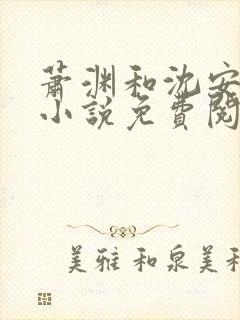 蕭淵和沈安
小說免費閱
美雅和泉美和